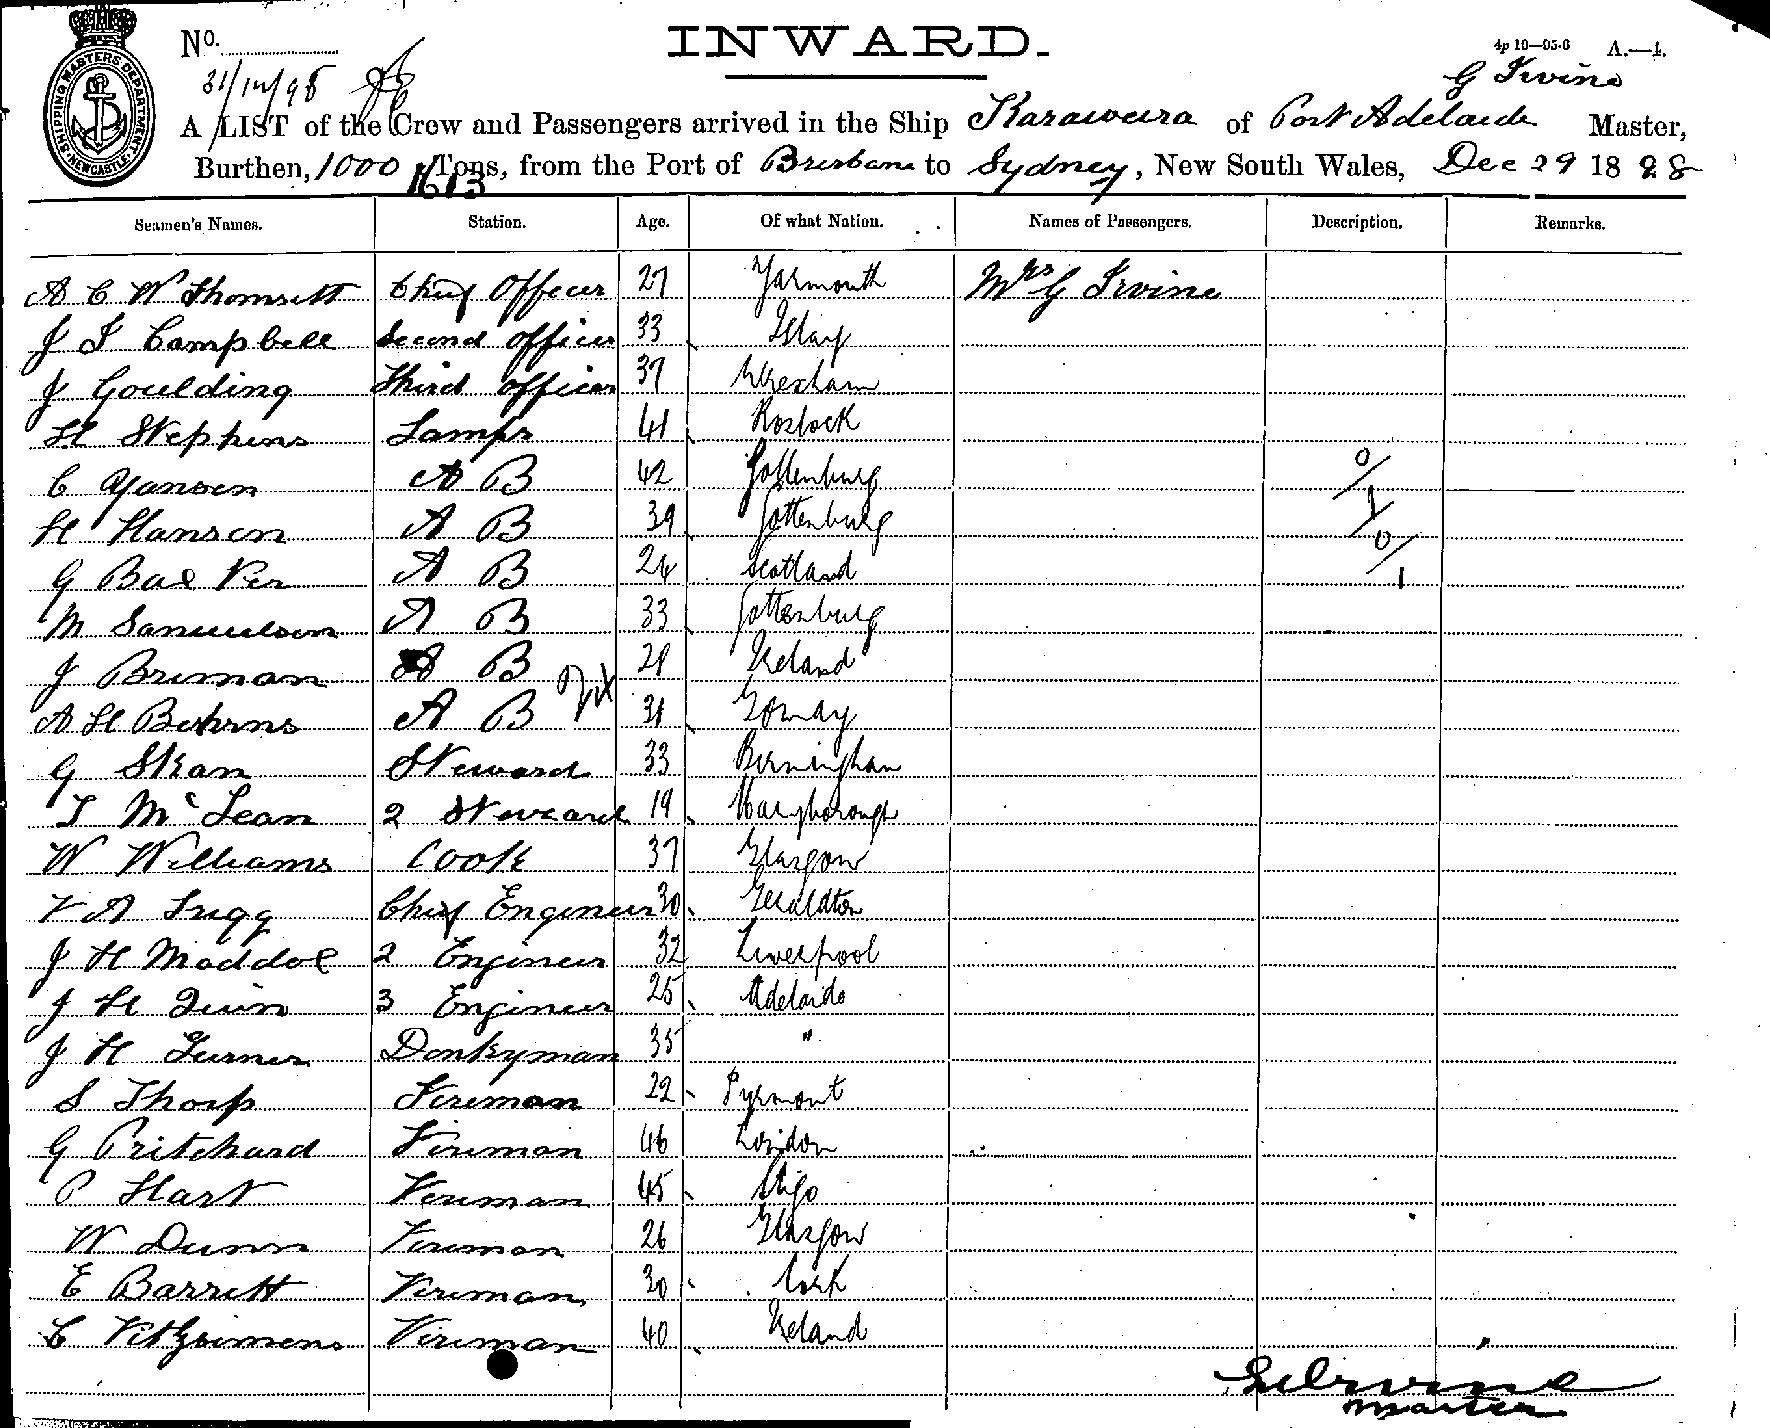 INWARD.
No.
4p 10—05-6 A.—1.
31/12/98
G Irvine
SHIPPING MASTERS DEPARTMENT NEWCASTLE
A LIST of the Crew and Passengers arrived in the Ship Karaweera of Port Adelaide Master,
Burthen, 1000 Tons, from the Port of Brisbane to Sydney, New South Wales, Dec 29 1898
1613
Seamen's Names. Station. Age. Of what Nation. Names of Passengers. Description. Remarks.
A C W Thomsett Chief Officer 27 Yarmouth Mrs G Irvine
J T Campbell Second Officer 33 Islay
J Goulding Third Officer 37 Wrexham
H Stephens Lamps 41 Rostock
C Yansen A B 42 Gottenburg 0/1
H Hansen A B 39 Gottenburg
G Barker A B 24 Scotland 0/1
M Samuelson A B 33 Gottenburg
J Brennan A B 28 Ireland
A H Behrns A B 31
G Skan Steward 33 Birmingham
T McLean 2 Steward 19 Maryborough
W Williams Cook 37 Glasgow
F A Trigg Chief Engineer 30 Geraldton
J H Maddox 2 Engineer 32 Liverpool
J H Quin 3 Engineer 25 Adelaide
J H Turner Donkyman 35 "
S Thorp Fireman 22 Pyrmont
G Pritchard Fireman 46 London
P Hart Fireman 45 Sligo
W Dunn Fireman 26 Glasgow
E Barrett Fireman 30 Cork
C Fitzsimens Fireman 40 Ireland
G Irvine
Master